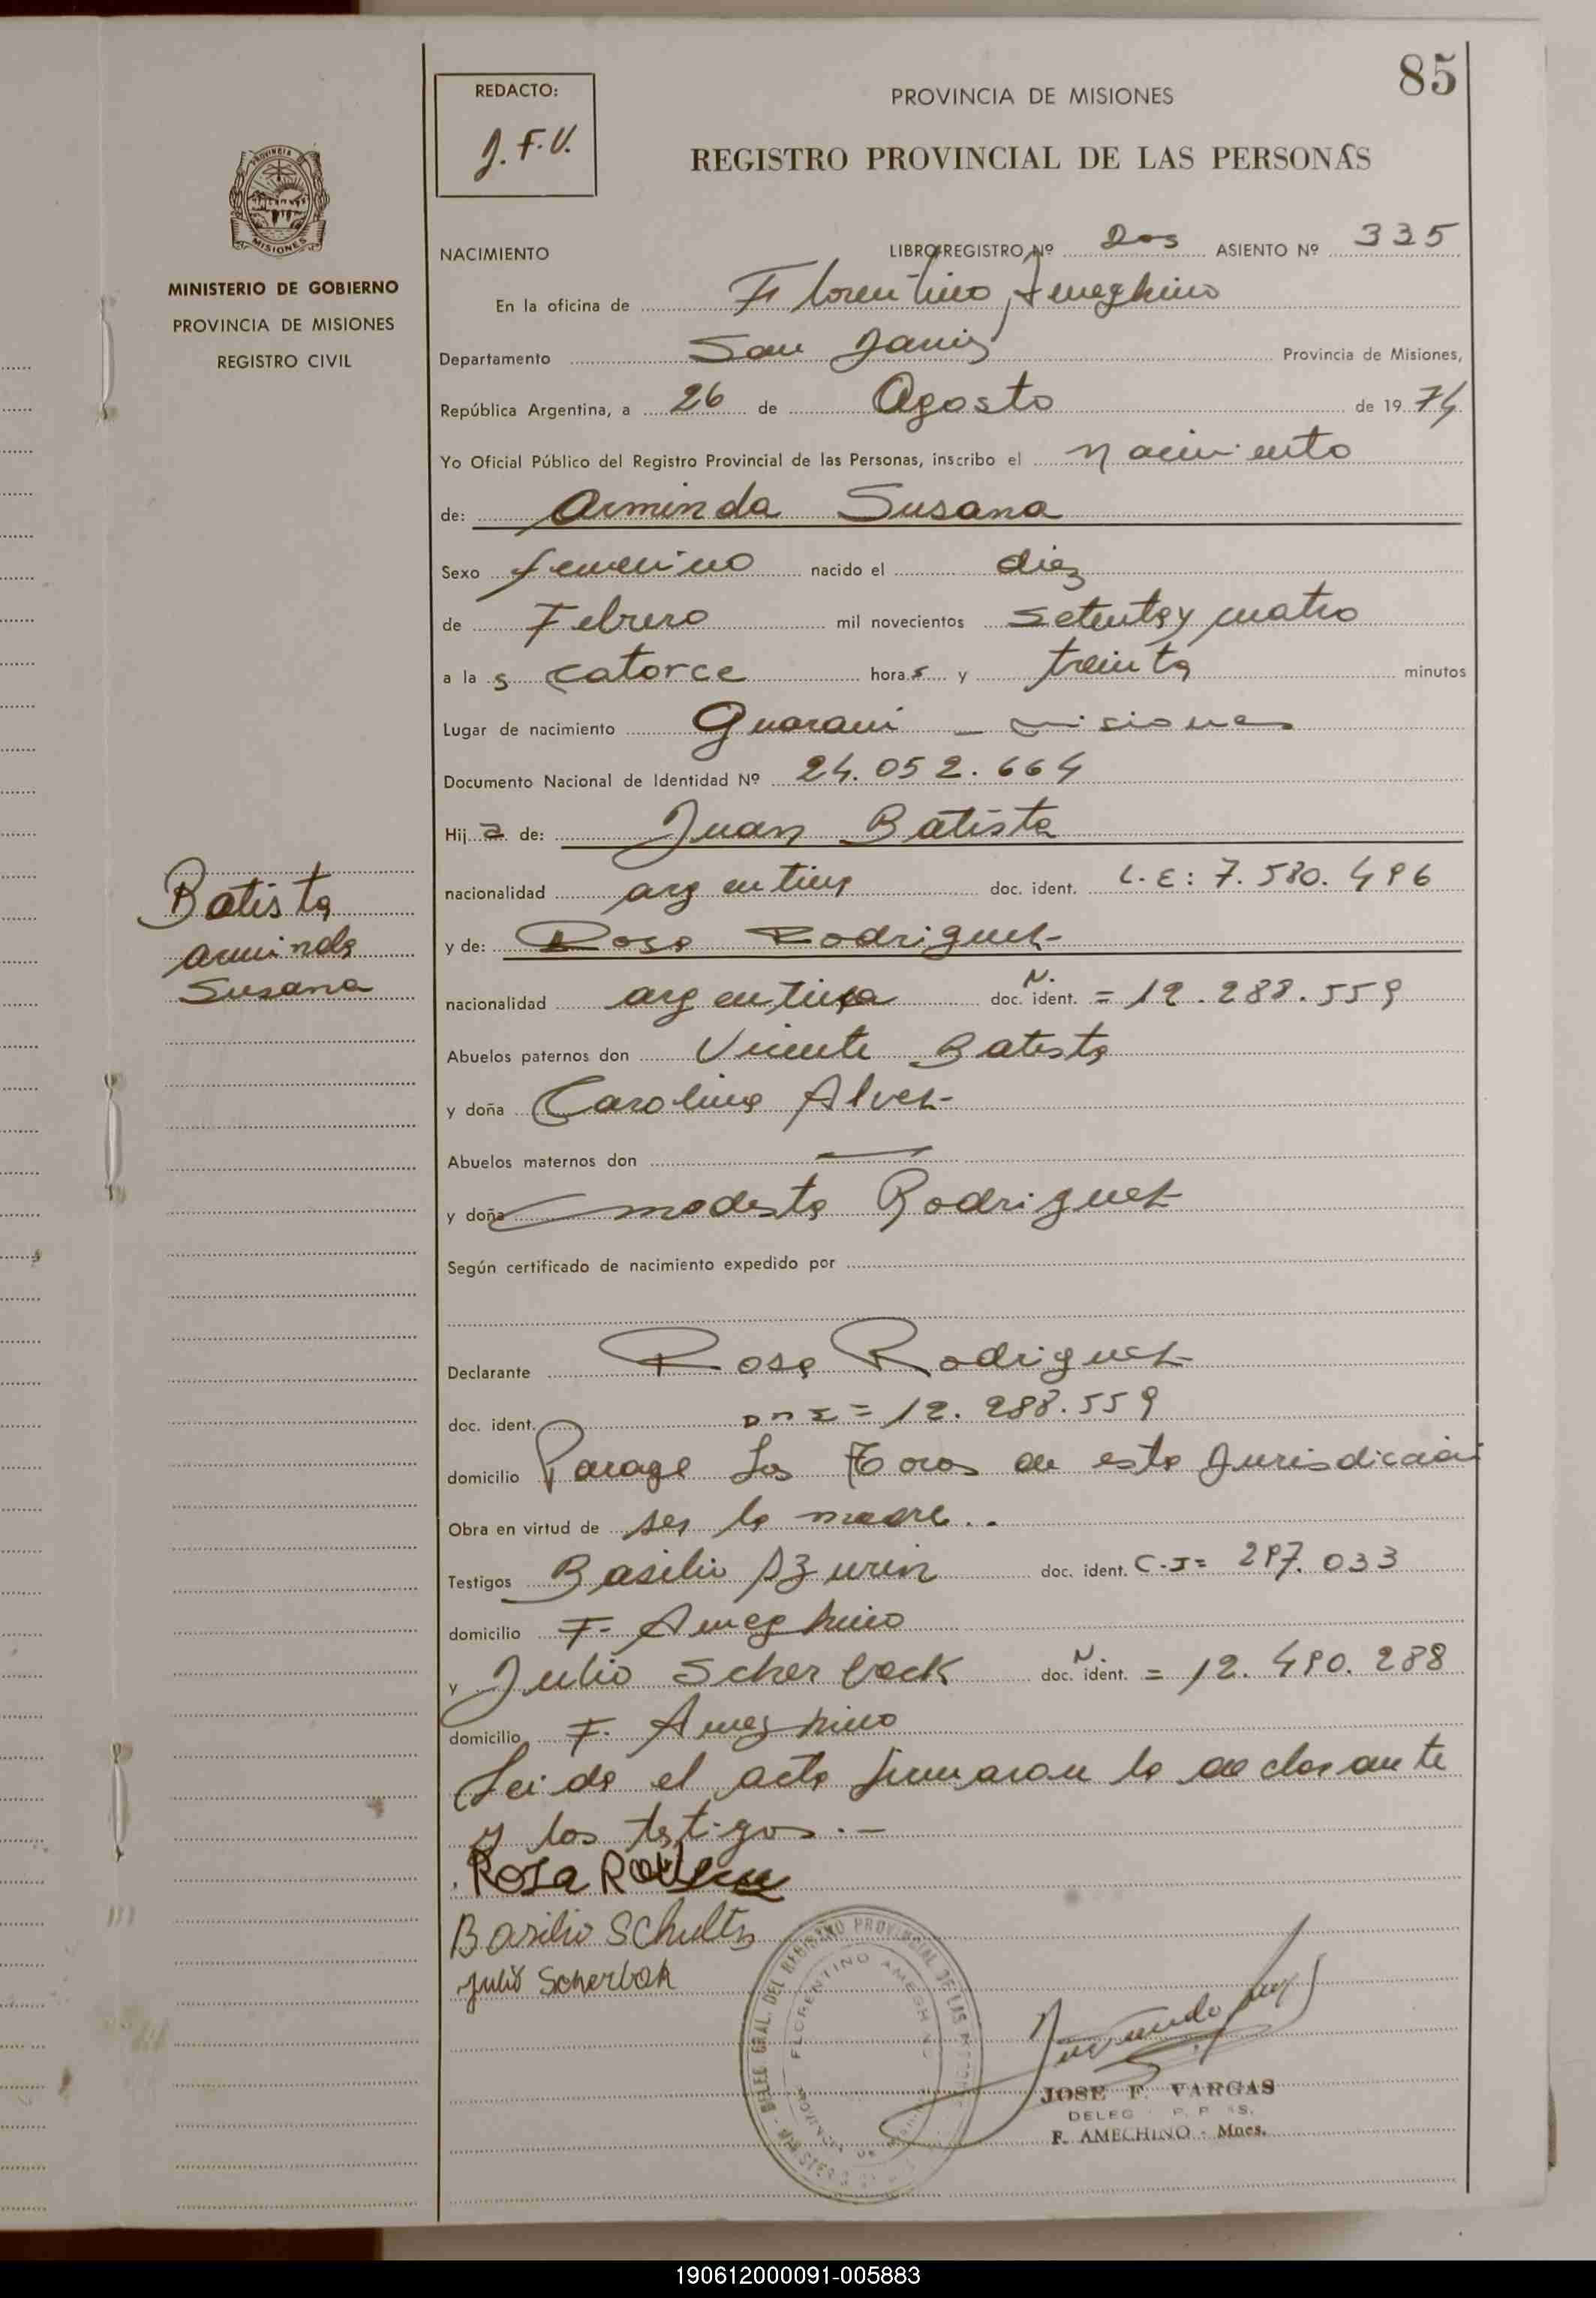 85
REDACTO:
J. F. V.
PROVINCIA DE MISIONES
REGISTRO PROVINCIAL DE LAS PERSONAS
MISIONES
MINISTERIO DE GOBIERNO
PROVINCIA DE MISIONES
REGISTRO CIVIL
NACIMIENTO LIBRO REGISTRO Nº Dos ASIENTO Nº 335
En la oficina de Florentino Ameghino
Departamento San Javier Provincia de Misiones,
República Argentina, a 26 de Agosto de 1974
Yo Oficial Público del Registro Provincial de las Personas, inscribo el nacimiento
de: Arminda Susana
Sexo femenino nacido el diez
de Febrero mil novecientos setenta y cuatro
a las catorce horas y treinta minutos
Lugar de nacimiento Guarani - Misiones
Documento Nacional de Identidad Nº 24.052.664
Hija de: Juan Batista
nacionalidad argentina doc. ident. L.E: 7.580.496
y de: Rosa Rodriguez
nacionalidad argentina doc. N. ident. = 12.288.559
Abuelos paternos don Vicente Batista
y doña Carolina Alvez
Abuelos maternos don —
y doña Modesta Rodriguez
Según certificado de nacimiento expedido por
Declarante Rosa Rodriguez
doc. ident. DNI = 12.288.559
domicilio Parage Los Toros de esta Jurisdiccion
Obra en virtud de ser la madre..
Testigos doc. ident. C.I = 297.033
Basilio
domicilio F. Ameghino
y Julio Scherback doc. N. ident. = 12.490.288
domicilio F. Ameghino
Leida el acta firmaron la declarante
y los testigos.—
Batista
Arminda
Susana
Rosa
Basilio Schultz
Julio Scherbak
DELEG. GRAL. DEL REGISTRO PROVINCIAL DE LAS
FLORENTINO AMEGHINO
JOSE F. VARGAS
DELEG
F. AMEGHINO - Mnes.
190612000091-005883